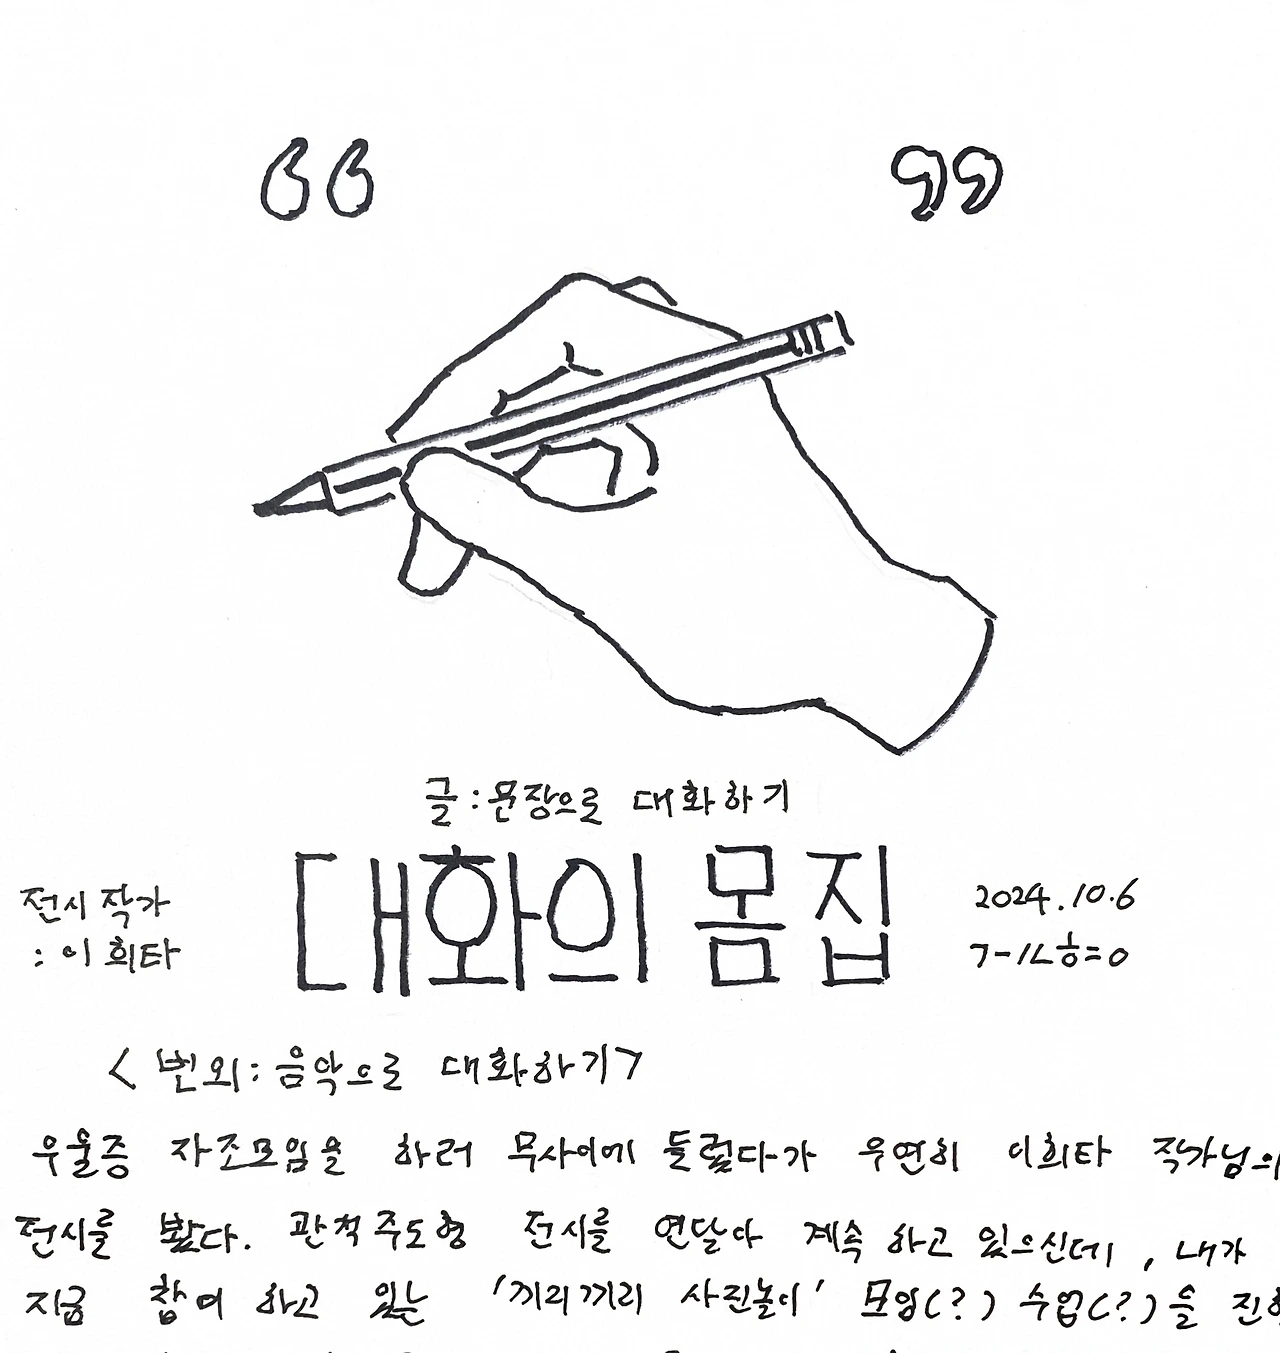 “ ”
글:문장으로 대화하기
대화의 몸집
전시작가
: 이희타
2024.10.6
< 번외: 음악으로 대화하기>
우울증 자조모임을 하러 무사이에 들렀다가 우연히 이희타 작가님의
전시를 봤다. 관객주도형 전시를 연달아 계속 하고 있으신데, 내가
지금 참여 하고 있는 '끼리끼리 사진놀이' 모임(?) 수업(?)을